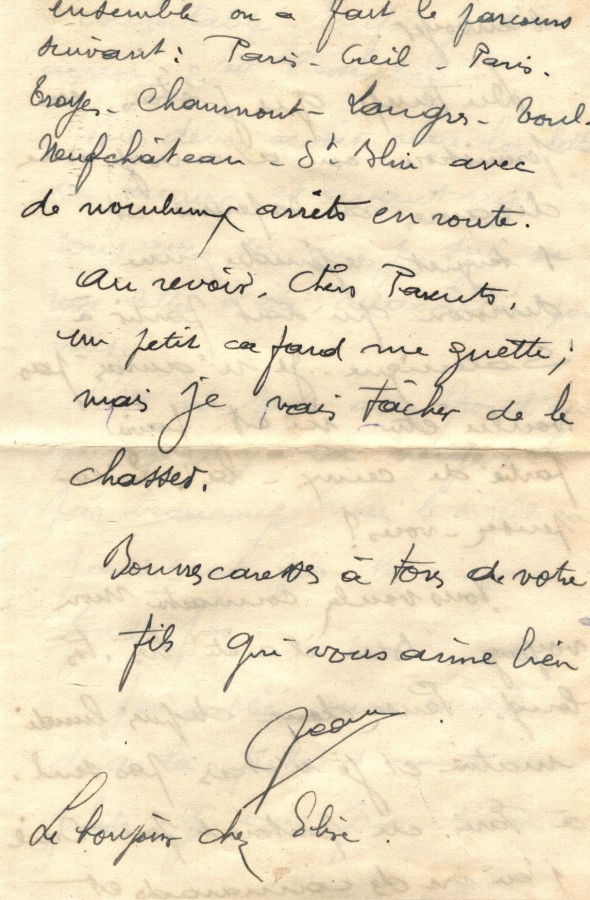 ensemble on a fait le parcours
suivant : Paris - Creil - Paris -
Troyes - Chaumont - Langres - Toul -
Neufchâteau - St Blin avec
de nombreux arrêts en route.
Au revoir, Chers Parents,
un petit cafard me guette,
mais je vais tâcher de le
chasser.
Bonnes caresses à tous de votre
fils qui vous aime bien
Jean
Le bonjour chez Elise.